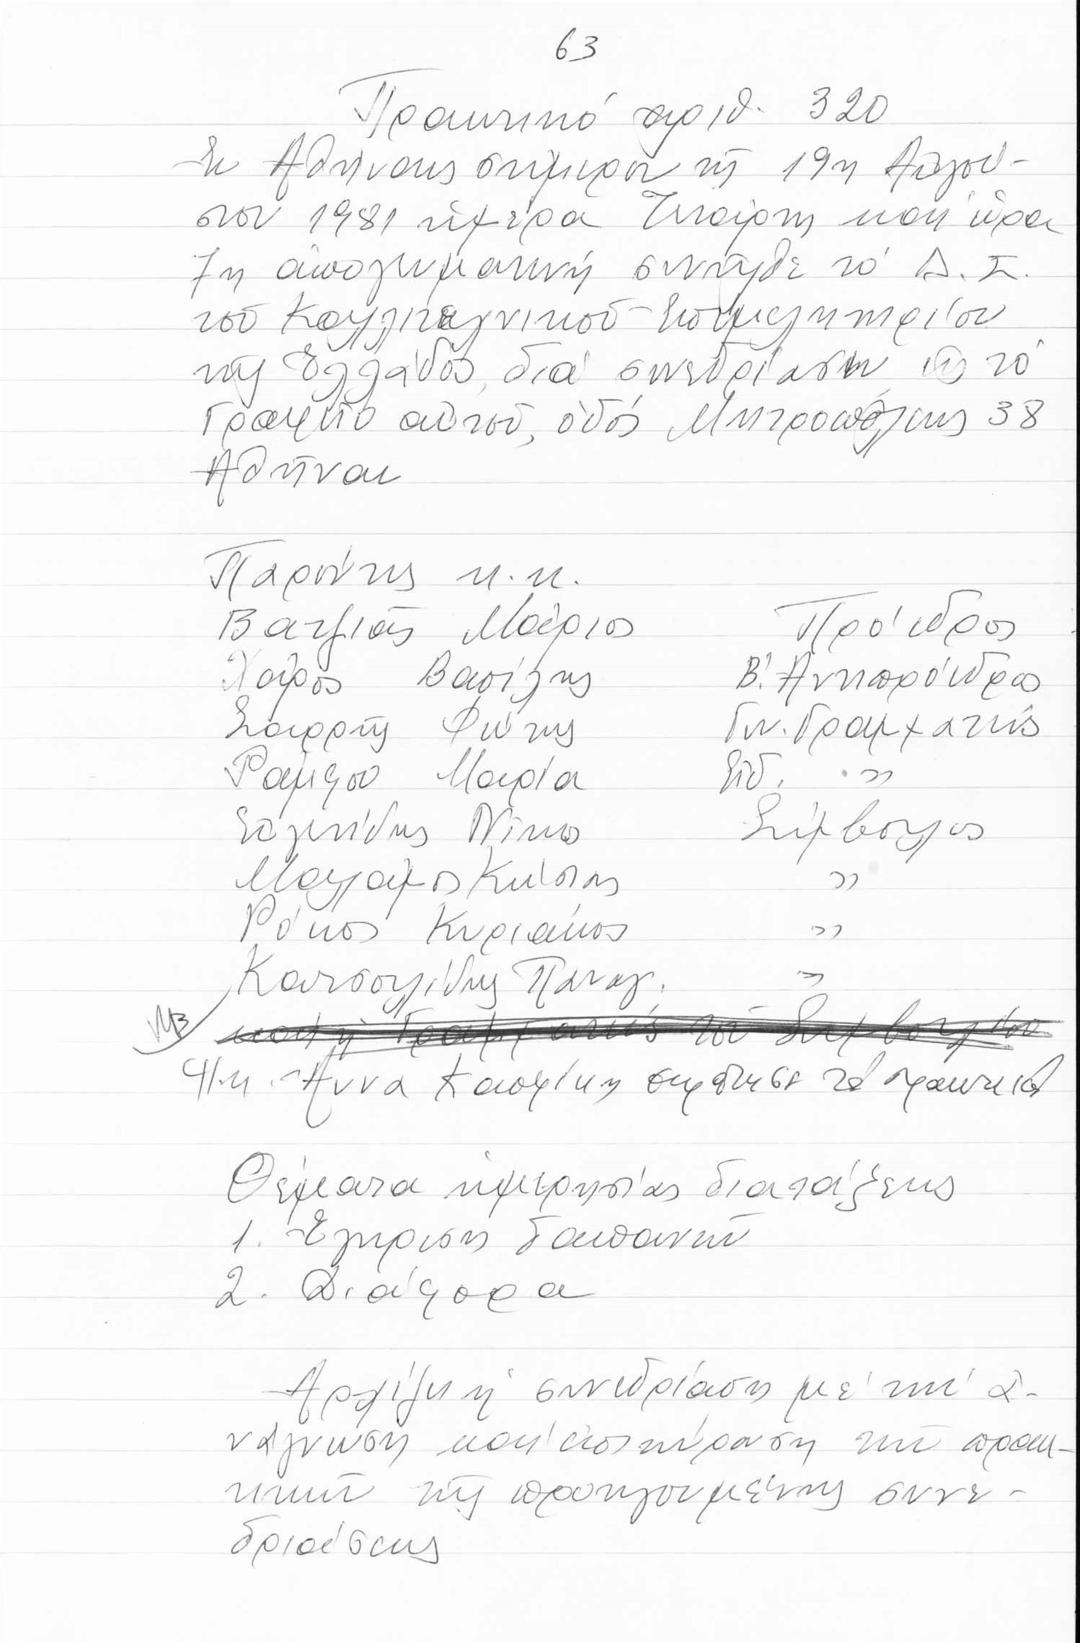 63
Πρακτικό αριθ. 320
Ἐν Ἀθήναις σήμερον τῇ 19η Αὐγού-
στου 1981 ἡμέρα Τετάρτη καί ὥρα
7η ἀπογευματινή συνῆλθε τό Δ.Σ.
τοῦ Καλλιτεχνικοῦ Ἐπιμελητηρίου
τῆς Ἑλλάδος, διά συνεδρίασιν εἰς τό
Γραφεῖο αὐτοῦ, ὁδός Μητροπόλεως 38
Ἀθῆναι
Παρόντες κ.κ.
Βατζιᾶς Μάριος Πρόεδρος
Χάρος Βασίλης Β! Ἀντιπρόεδρος
Σαρρῆς Φώτης Γεν. Γραμματεύς
Ραμφου Μαρία Εἰδ. "
Νίκος Σύμβουλος
Μαλάμος Κώστας "
Ρόκος Κυριάκος "
Κατσουλίδης Παναγ. "
καί ἡ Γραμματεύς τοῦ Συμβουλίου
Ἡ κ. Ἄννα ἐκράτησε τά πρακτικά
Θέματα ἡμερησίας διατάξεως
1. Ἔγκρισις δαπανῶν
2. Διάφορα
Ἀρχίζει ἡ συνεδρίαση μέ τήν ἀ-
νάγνωση καί ἐπικύρωση τῶν πρακ-
τικῶν τῆς προηγουμένης συνε-
δριάσεως